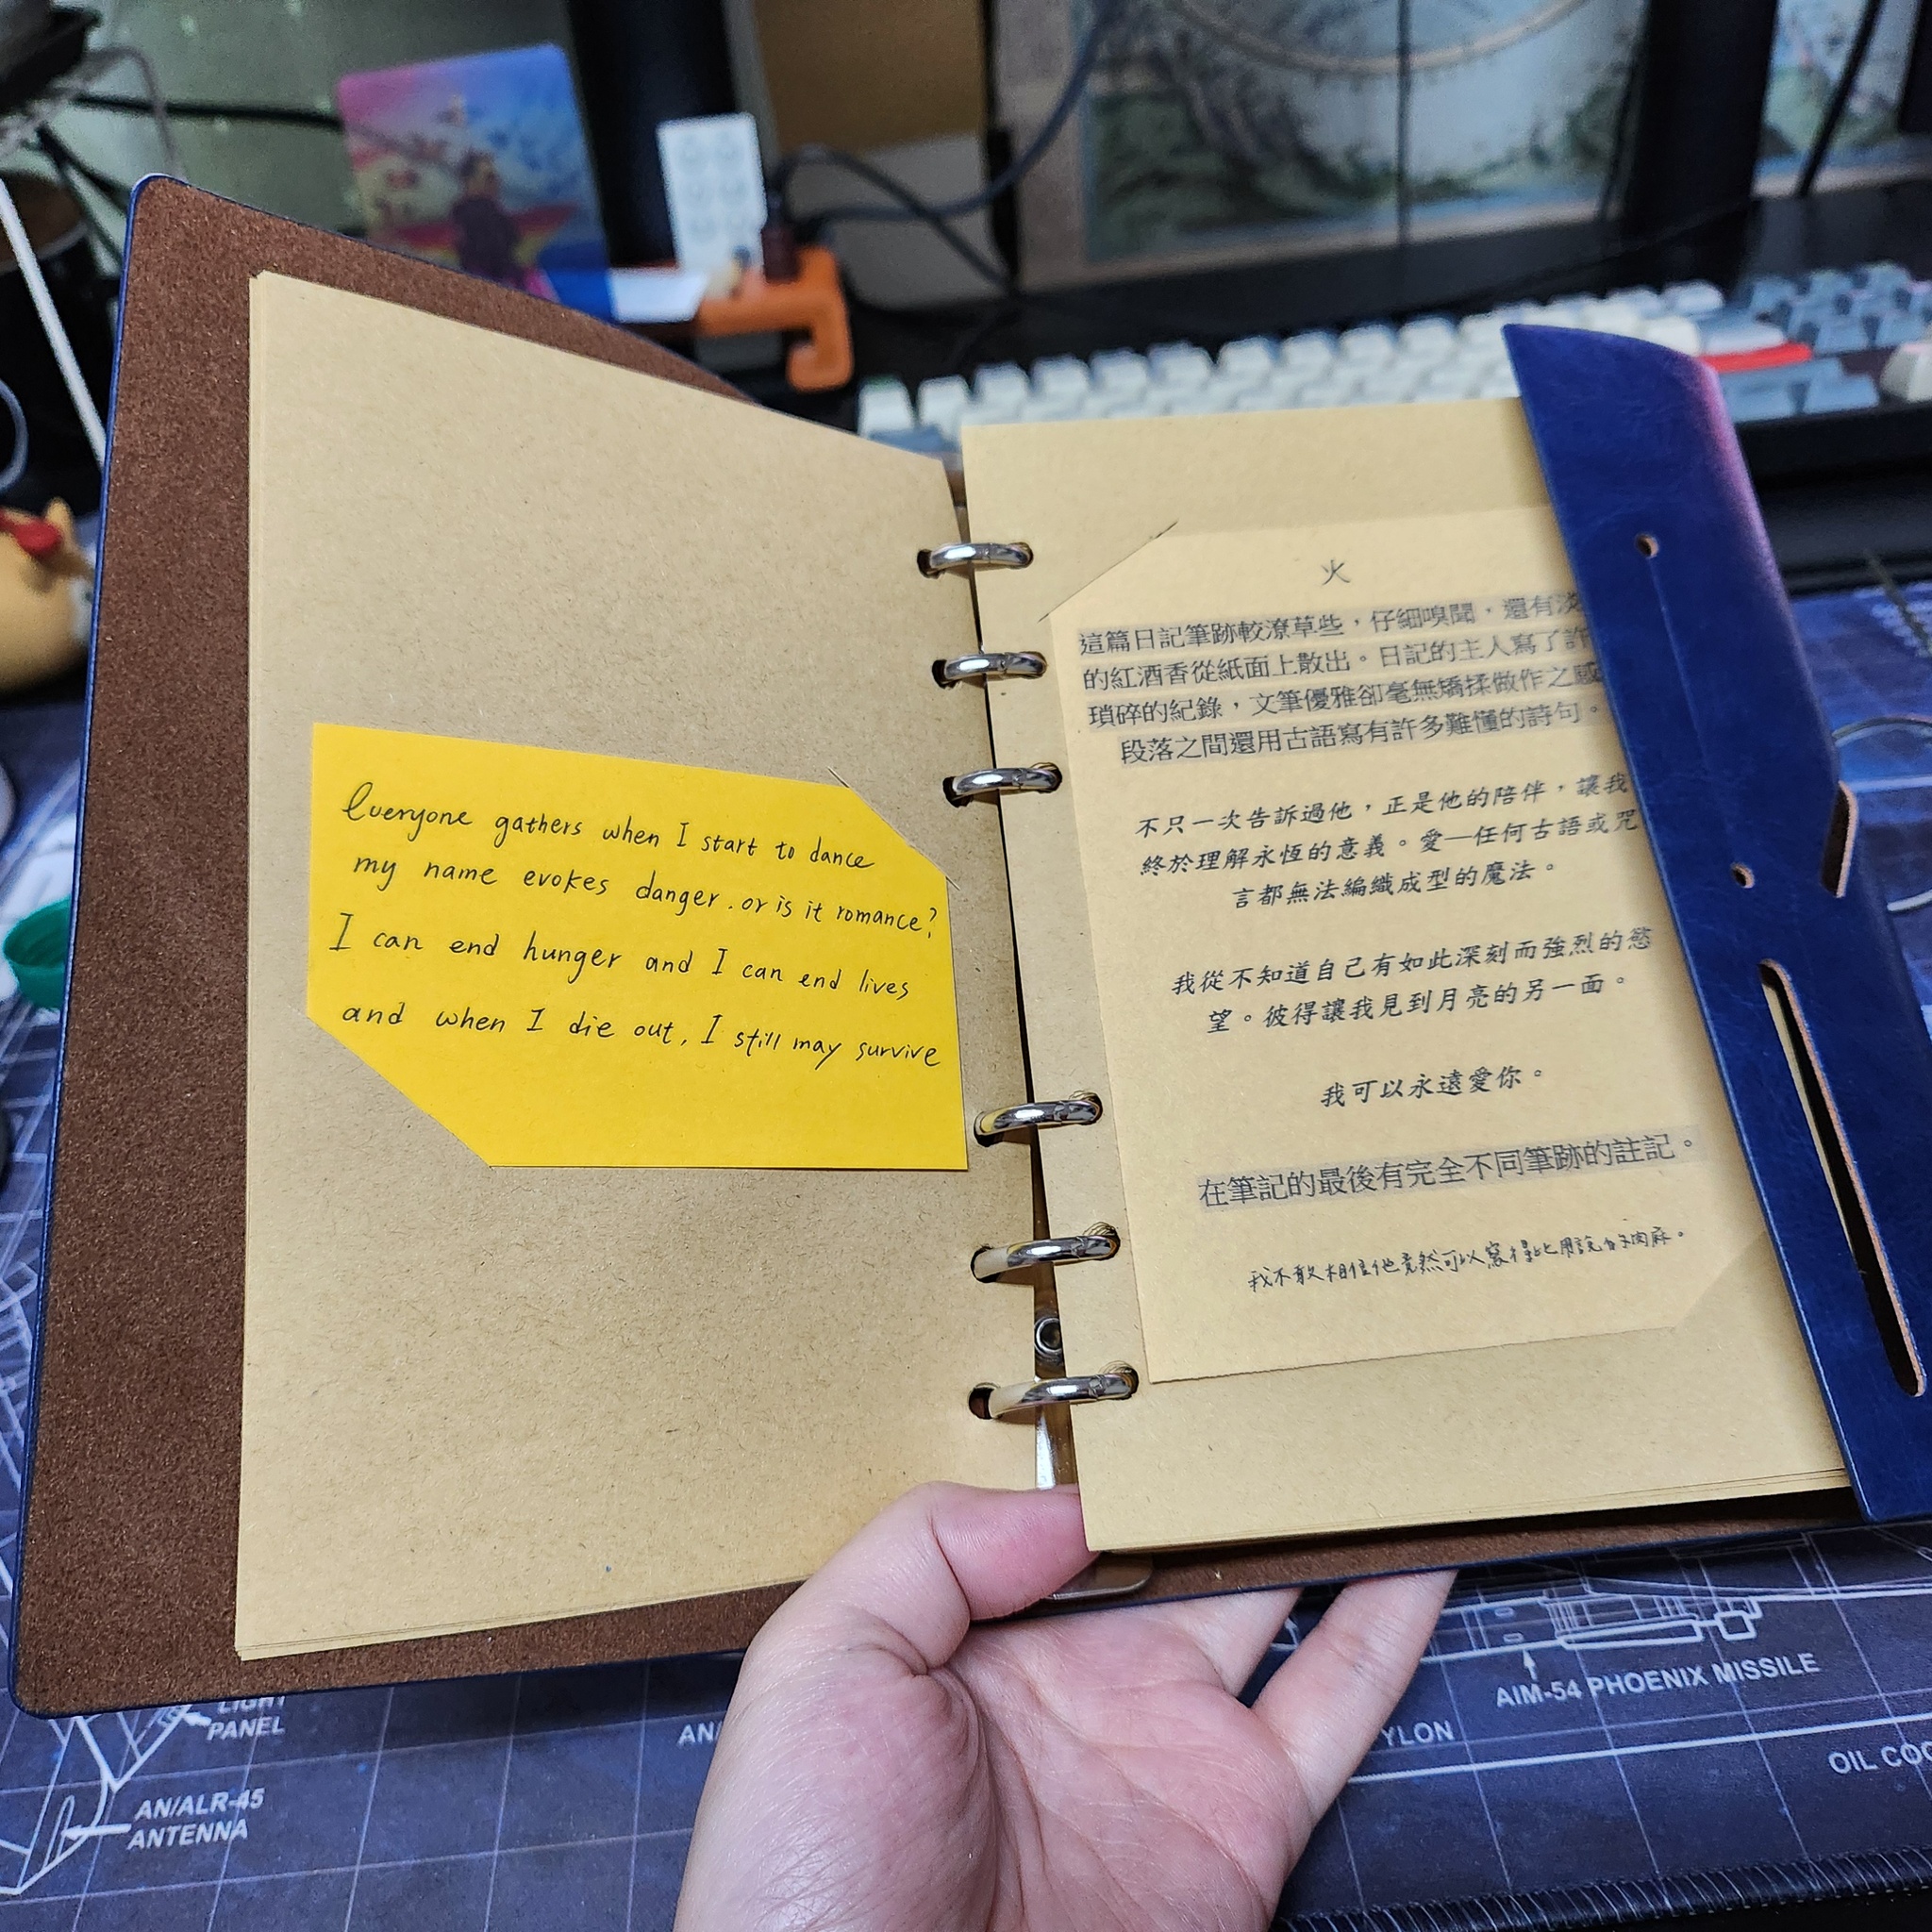 Everyone gathers when I start to dance
my name evokes danger. or is it romance?
I can end hunger and I can end lives
and when I die out, I still may survive
火
這篇日記筆跡較潦草些，仔細嗅聞，還有淡
的紅酒香從紙面上散出。日記的主人寫了許
瑣碎的紀錄，文筆優雅卻毫無矯揉做作之感
段落之間還用古語寫有許多難懂的詩句。
不只一次告訴過他，正是他的陪伴，讓我
終於理解永恆的意義。愛—任何古語或咒
言都無法編織成型的魔法。
我從不知道自己有如此深刻而強烈的慾
望。彼得讓我見到月亮的另一面。
我可以永遠愛你。
在筆記的最後有完全不同筆跡的註記。
我不敢相信他竟然可以寫得比用說的還肉麻。
LIGHT
PANEL
AN/ALR-45
ANTENNA
AN/
AIM-54 PHOENIX MISSILE
YLON
OIL COO